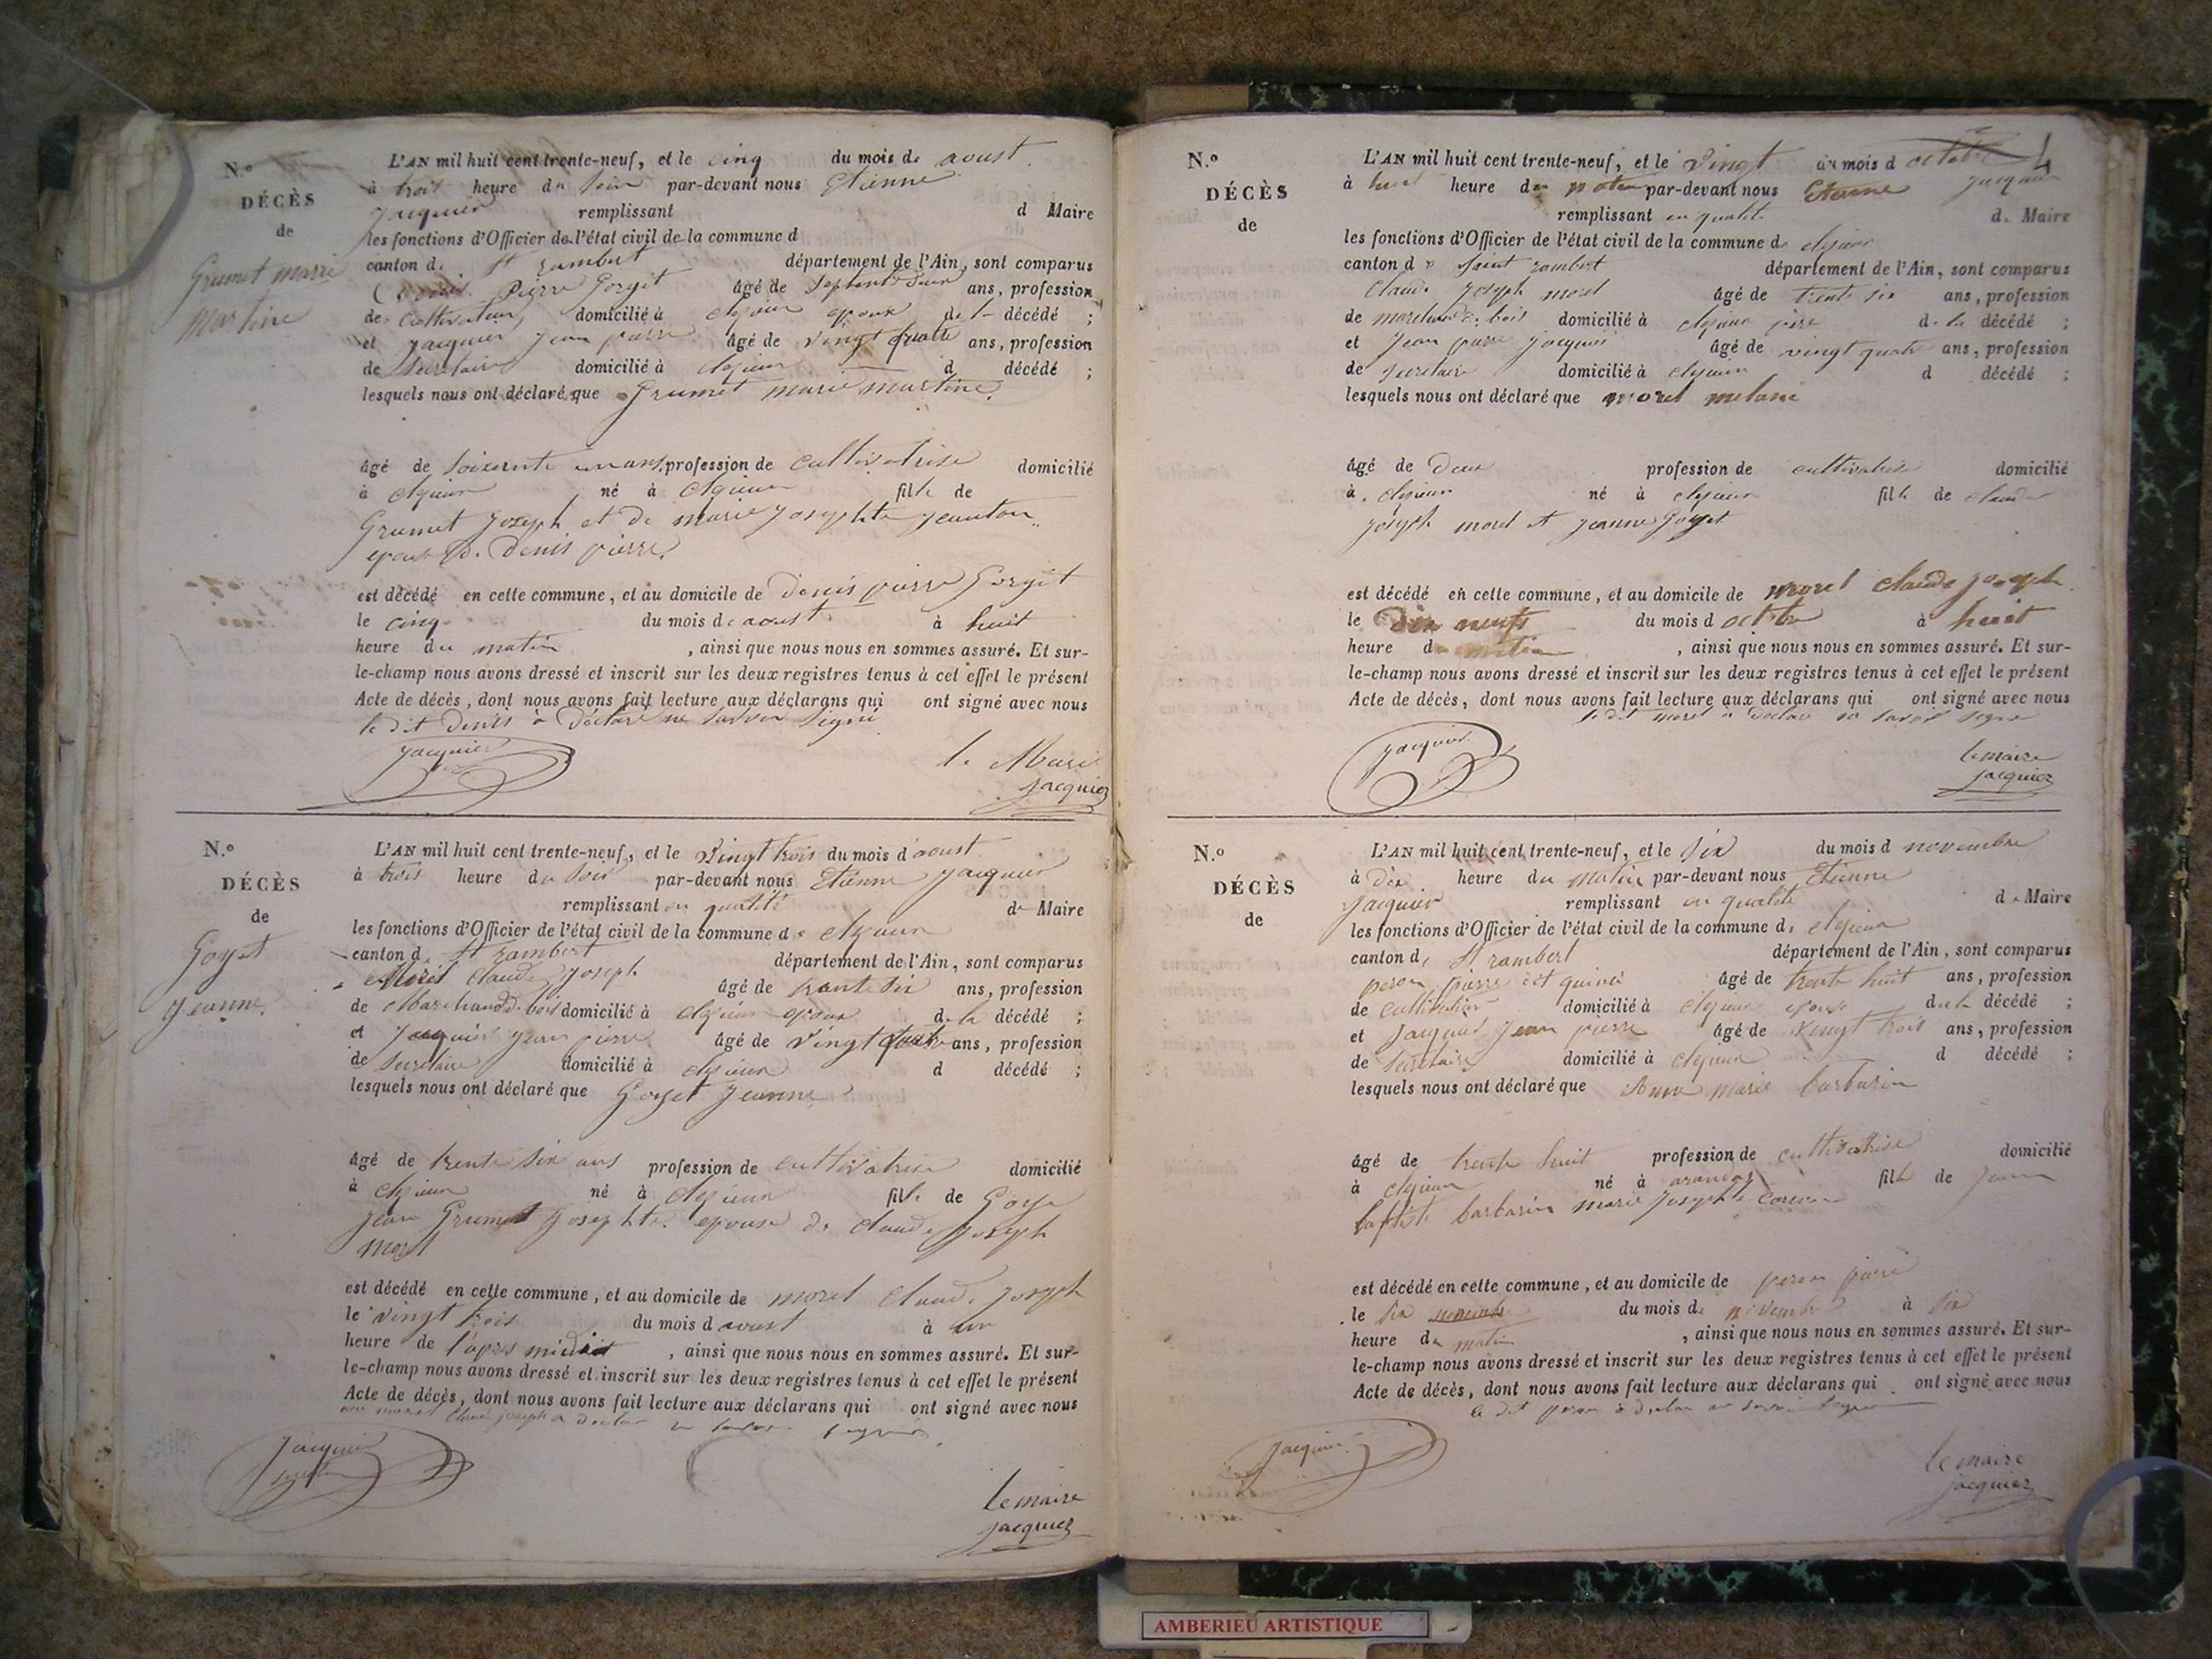 N.º
DÉCÈS
de
Grumet marie
Martine
L'AN mil huit cent trente-neuf, et le cinq du mois de aoust
à trois heure du soir par-devant nous Etienne
Jacquier remplissant d Maire
les fonctions d'Officier de l'état civil de la commune d
canton de St rambert département de l'Ain, sont comparus
Denis Pierre Gorgit âgé de ans, profession
de cultivateur domicilié à clezieu epoux de la décédé ;
et Jacquier Jean pierre âgé de vingt quatre ans, profession
de secretaire domicilié à clezieu d décédé ;
lesquels nous ont déclaré que Grumet marie martine
âgé de soixente un ans profession de cultivatrise domicilié
à clezieu né à clezieu fille de
Grumet Joseph et de marie Josephte Jeanton
epouse de denis pierre
est décédé en cette commune, et au domicile de denis pierre Gorgit
le cinq du mois de aoust à huit
heure du matin , ainsi que nous nous en sommes assuré. Et sur-
le-champ nous avons dressé et inscrit sur les deux registres tenus à cet effet le présent
Acte de décès, dont nous avons fait lecture aux déclarans qui ont signé avec nous
le dit denis à déclaré ne savoir signé
Jacquier
le Maire
Jacquier
N.º
DÉCÈS
de
Goyet
Jeanne
L'AN mil huit cent trente-neuf, et le vingt trois du mois d'aoust
à trois heure du soir par-devant nous Etienne Jacquier
remplissant en qualité de Maire
les fonctions d'Officier de l'état civil de la commune de clezieu
canton de St rambert département de l'Ain, sont comparus
Morel claude Joseph âgé de trente six ans, profession
de Marchand de bois domicilié à clezieu epoux de la décédé ;
et Jacquier Jean pierre âgé de vingt quatre ans, profession
de secretaire domicilié à clezieu d décédé ;
lesquels nous ont déclaré que Goyet Jeanne
âgé de trente six ans profession de cultivatrise domicilié
à clezieu né à clezieu fille de Goye
Jean Grumet Josephte epouse de claude Joseph
Morel
est décédé en cette commune, et au domicile de morel claude Joseph
le vingt trois du mois d aoust à un
heure de l'apres midit , ainsi que nous nous en sommes assuré. Et sur-
le-champ nous avons dressé et inscrit sur les deux registres tenus à cet effet le présent
Acte de décès, dont nous avons fait lecture aux déclarans qui ont signé avec nous
claude joseph a
Jacquier
le maire
Jacquier
N.º
DÉCÈS
de
L'AN mil huit cent trente-neuf, et le vingt du mois d octobre 4
à huit heure du matin par-devant nous Etienne Jacquier
remplissant en qualité de Maire
les fonctions d'Officier de l'état civil de la commune de clezieu
canton de Saint rambert département de l'Ain, sont comparus
Claude Joseph morel âgé de trente six ans, profession
de marchand de bois domicilié à clezieu pere de la décédé ;
et Jean pierre Jacquier âgé de vingt quatre ans, profession
de secretaire domicilié à clezieu d décédé ;
lesquels nous ont déclaré que morel melanie
âgé de deux profession de cultivatrise domicilié
à clezieu né à clezieu fille de claude
Joseph morel et Jeanne Goyet
est décédé en cette commune, et au domicile de morel claude Joseph
le Dix neuf du mois d octobre à huit
heure du matin , ainsi que nous nous en sommes assuré. Et sur-
le-champ nous avons dressé et inscrit sur les deux registres tenus à cet effet le présent
Acte de décès, dont nous avons fait lecture aux déclarans qui ont signé avec nous
le dit morel a declare ne savoir signe
Jacquier
le maire
Jacquier
N.º
DÉCÈS
de
L'AN mil huit cent trente-neuf, et le six du mois d novembre
à dix heure du matin par-devant nous Etienne
Jacquier remplissant en qualité de Maire
les fonctions d'Officier de l'état civil de la commune de clezieu
canton de St rambert département de l'Ain, sont comparus
peron pierre dit âgé de trente huit ans, profession
de cultivateur domicilié à clezieu epoux de la décédé ;
et Jacquier Jean pierre âgé de vingt trois ans, profession
de secretaire domicilié à clezieu d décédé ;
lesquels nous ont déclaré que Anne marie barbarin
âgé de trente huit profession de cultivatrise domicilié
à clezieu né à arandas fille de Jean
baptiste barbarin marie Josephte
est décédé en cette commune, et au domicile de peron pierre
le six novembre du mois de novembre à six
heure du matin , ainsi que nous nous en sommes assuré. Et sur-
le-champ nous avons dressé et inscrit sur les deux registres tenus à cet effet le présent
Acte de décès, dont nous avons fait lecture aux déclarans qui ont signé avec nous
le dit peron a declare ne savoir signe
Jacquier
le maire
Jacquier
AMBERIEU ARTISTIQUE